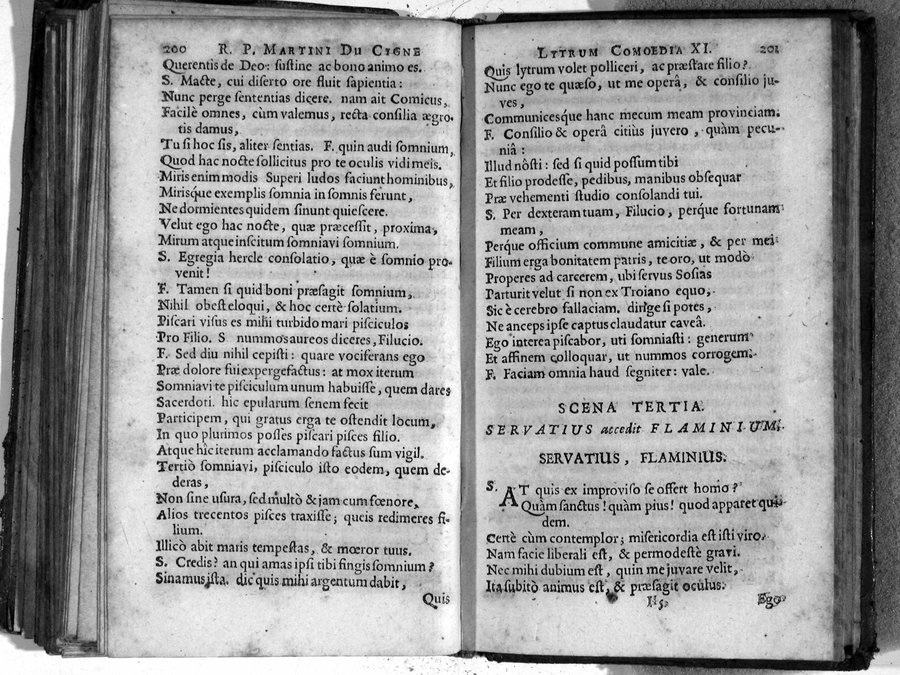 200 R. P. MARTINI DU CYGNE
Querentis de Deo: sustine ac bono animo es.
S. Macte, cui diserto ore fluit sapientia:
Nunc perge sententias dicere. nam ait Comicus,
Facilè omnes, cùm valemus, recta consilia ægro-
tis damus,
Tu si hoc sis, aliter sentias. F. quin audi somnium,
Quod hac nocte sollicitus pro te oculis vidi meis.
Miris enim modis Superi ludos faciunt hominibus,
Mirisque exemplis somnia in somnis ferunt,
Ne dormientes quidem sinunt quiescere.
Velut ego hac nocte, quæ præcessit, proxima,
Mirum atque inscitum somniavi somnium.
S. Egregia hercle consolatio, quæ è somnio pro-
venit!
F. Tamen si quid boni præsagit somnium,
Nihil obest eloqui, & hoc certè solatium.
Piscari visus es mihi turbido mari pisciculos
Pro Filio. S nummos aureos diceres, Filucio.
F. Sed diu nihil cepisti: quare vociferans ego
Præ dolore fui expergefactus: at mox iterum
Somniavi te pisciculum unum habuisse, quem dares
Sacerdoti. hic epularum senem fecit
Participem, qui gratus erga te ostendit locum,
In quo plurimos posses piscari pisces filio.
Atque hîc iterum acclamando factus sum vigil.
Tertiò somniavi, pisciculo isto eodem, quem de-
deras,
Non sine usura, sed multò & jam cum fœnore,
Alios trecentos pisces traxisse; queis redimeres fi-
lium.
Illicò abit maris tempestas, & mœror tuus.
S. Credis? an qui amas ipsi tibi fingis somnium?
Sinamus ista. dic quis mihi argentum dabit,
Quis
LYTRUM COMOEDIA XI. 201
Quis lytrum volet polliceri, ac præstare filio?
Nunc ego te quæso, ut me operâ, & consilio ju-
ves,
Communicesque hanc mecum meam provinciam.
F. Consilio & operâ citius juvero, quàm pecu-
niâ:
Illud nôsti: sed si quid possum tibi
Et filio prodesse, pedibus, manibus obsequar
Præ vehementi studio consolandi tui.
S. Per dexteram tuam, Filucio, perque fortunam
meam,
Perque officium commune amicitiæ, & per mei
Filium erga bonitatem patris, te oro, ut modò
Properes ad carcerem, ubi servus Sosias
Parturit velut si non ex Troiano equo,
Sic è cerebro fallaciam. dirige si potes,
Ne anceps ipse captus claudatur caveâ.
Ego interea piscabor, uti somniasti: generum
Et affinem colloquar, ut nummos corrogem.
F. Faciam omnia haud segniter: vale.
SCENA TERTIA.
SERVATIUS accedit FLAMINIUM.
SERVATIUS, FLAMINIUS.
S. AT quis ex improviso se offert homo?
Quàm sanctus! quàm pius! quod apparet qui-
dem.
Certè cùm contemplor; misericordia est isti viro.
Nam facie liberali est, & permodestè gravi.
Nec mihi dubium est, quin me juvare velit,
Ita subitò animus est, & præsagit oculus.
Ego